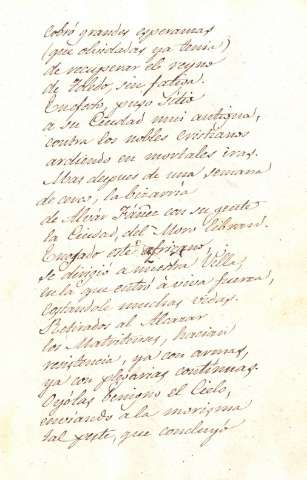 cobró grandes esperanzas
(que olvidadas ya tenia)
de recuperar el reyno
de Toledo, sin fatiga.
En efecto, puso Sitio
a su Ciudad mui antigua,
contra los nobles Cristianos
ardiendo en mortales iras.
Mas despues de una semana
de años, la bizarria
de Alvar Fañez con su gente
la Ciudad, del Moro libran.
Enojado este africano,
se dirigió a nuestra Villa,
en la que entró a viva fuerza,
costandole muchas vidas.
Retirados al Alcazar
los Matritines, hacian
resistencia, ya con armas,
ya con plegarias continuas.
Oyólas benigno el Cielo,
enviando a la morisma
tal peste, que concluyó